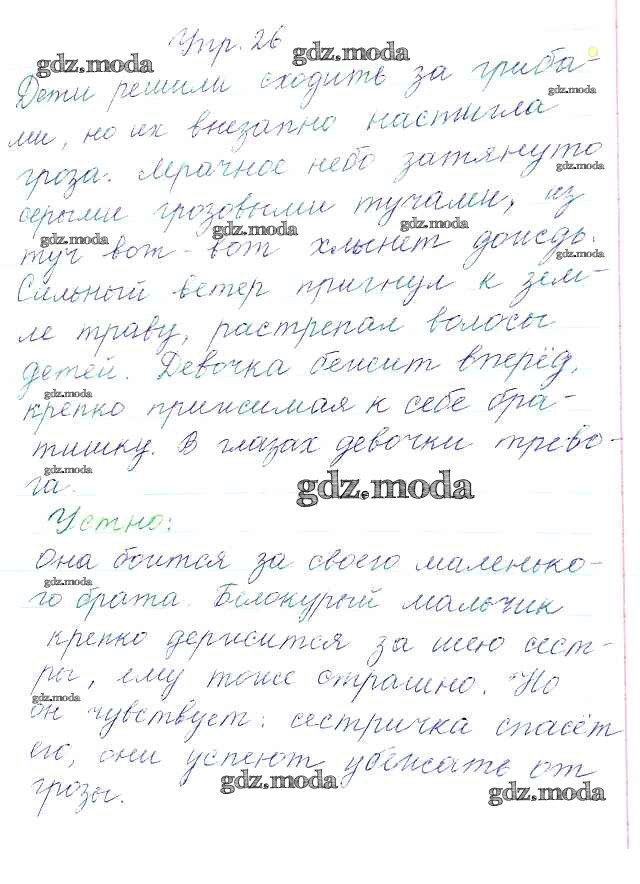 Упр. 26
gdz.moda
gdz.moda
Дети решили сходить за гриба-
gdz.moda
ми, но их внезапно настигла
гроза. Мрачное небо затянуто
gdz.moda
серыми грозовыми тучами, из
gdz.moda
gdz.moda
gdz.moda
туч вот-вот хлынет дождь.
gdz.moda
Сильный ветер пригнул к зем-
ле траву, растрепал волосы
детей. Девочка бежит вперёд,
gdz.moda
крепко прижимая к себе бра-
тишку. В глазах девочки трево-
gdz.moda
га.
gdz.moda
Устно:
Она боится за своего маленько-
gdz.moda
го брата. Белокурый мальчик
крепко держится за шею сест-
ры, ему тоже страшно. Но
gdz.moda
он чувствует: сестричка спасёт
его, они успеют убежать от
gdz.moda
gdz.moda
грозы.